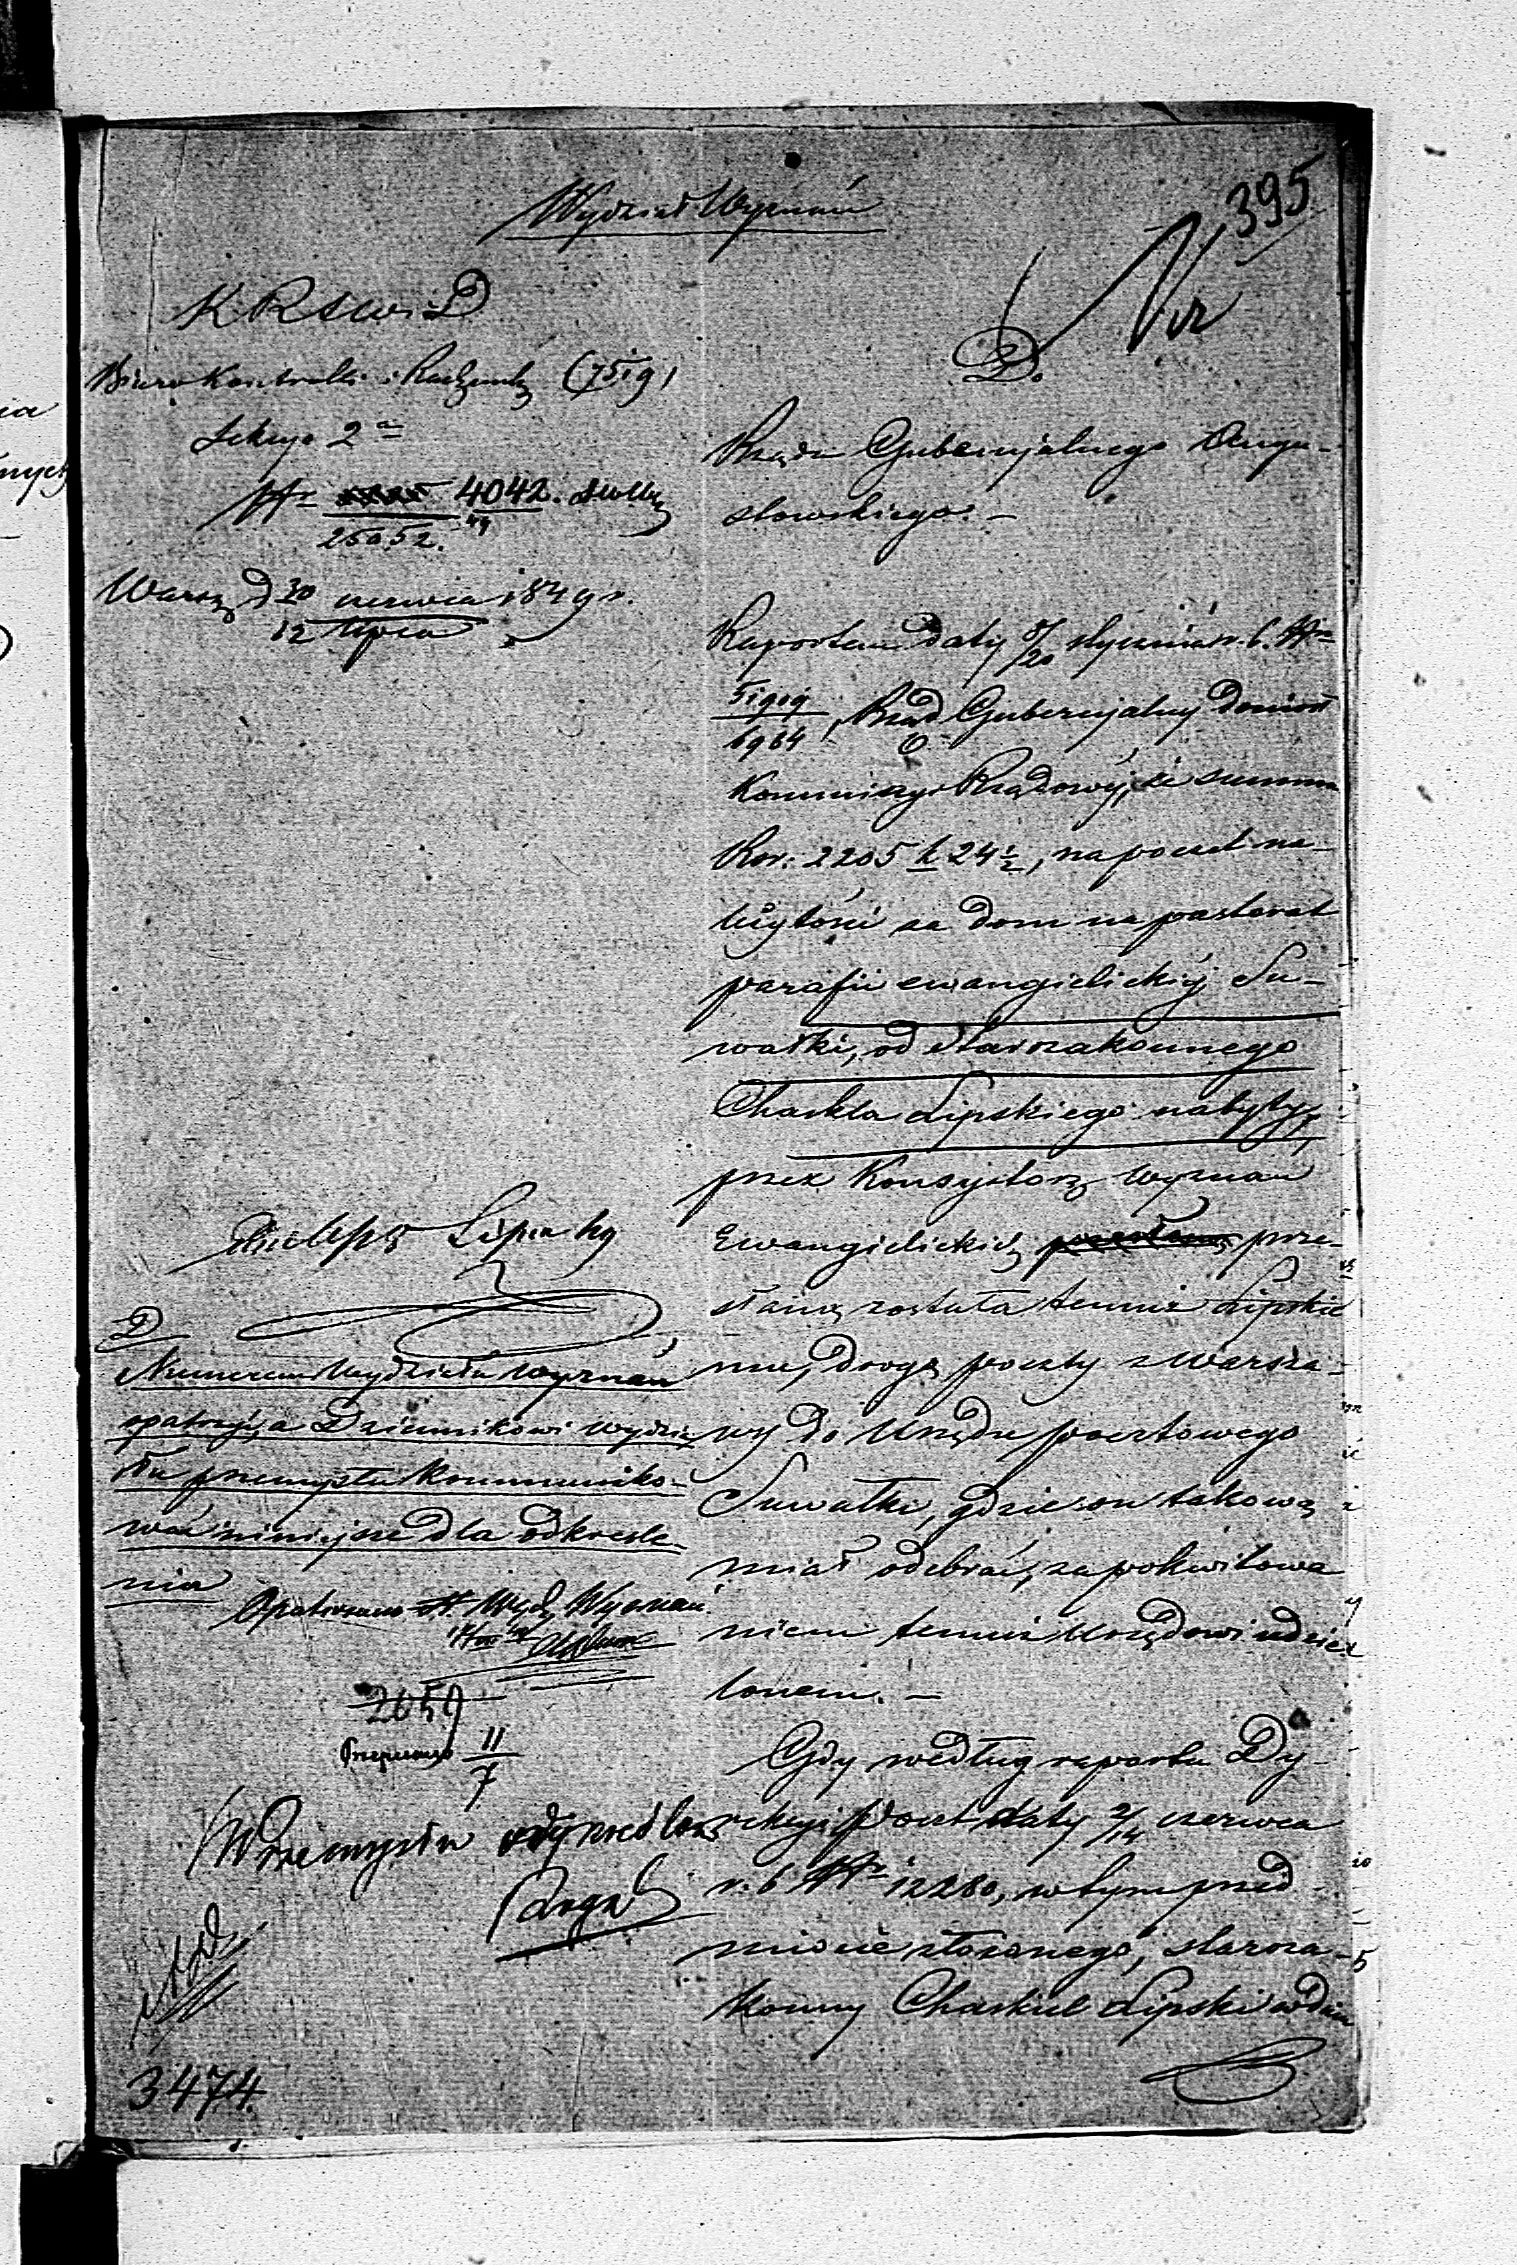 Wydział Wyznań
395
Nr
K R S W i D
Biuro Kontrolli i Rachunk. (7519)
Sekcya 2a
Nr 4042.
25052. 49
Warsz. d 30 czerwca 1849 r.
12 lipca
Do
Rządu Gubernjalnego Augu-
stowskiego. —
Raportem daty 8/20 stycznia r. b. Nr
51909
6964, Rząd Gubernjalny doniósł
Kommissyi Rządowéj, że summa
Rsr: 2205 k 24½, na poczet na-
leżytości za dom na pastorat
parafii ewangielickiéj Su-
wałki, od starozakonnego
Chaskla Lipskiego nabyty,
przez Konsystorz wyznań
Ewangielickich prze-
słaną została temuż Lipskie
mu, drogą poczty z Warsza-
wy do Urzędu pocztowego
Suwałki, gdzie on takową
miał odebrać, za pokwitowa
niem temuż Urzędowi udzie-
lonem. —
Gdy według raportu Dy-
rekcyi Poczt daty 2/14 czerwca
r. b. Nr 12280, w tym przed-
miocie złożonego, staroza-
konny Chaskiel Lipski w dniu
Lipsky
D
Numerem Wydziału Wyznań
opatrzyć, a Dziennikowi Wydzia
łu przemysłu kommuniko-
wać niniejsze dla odkreśle-
nia
Opatrzono Nr. Wydz. Wyznań.
2659
Przepisano 11/7
W Przemyśle
3474.